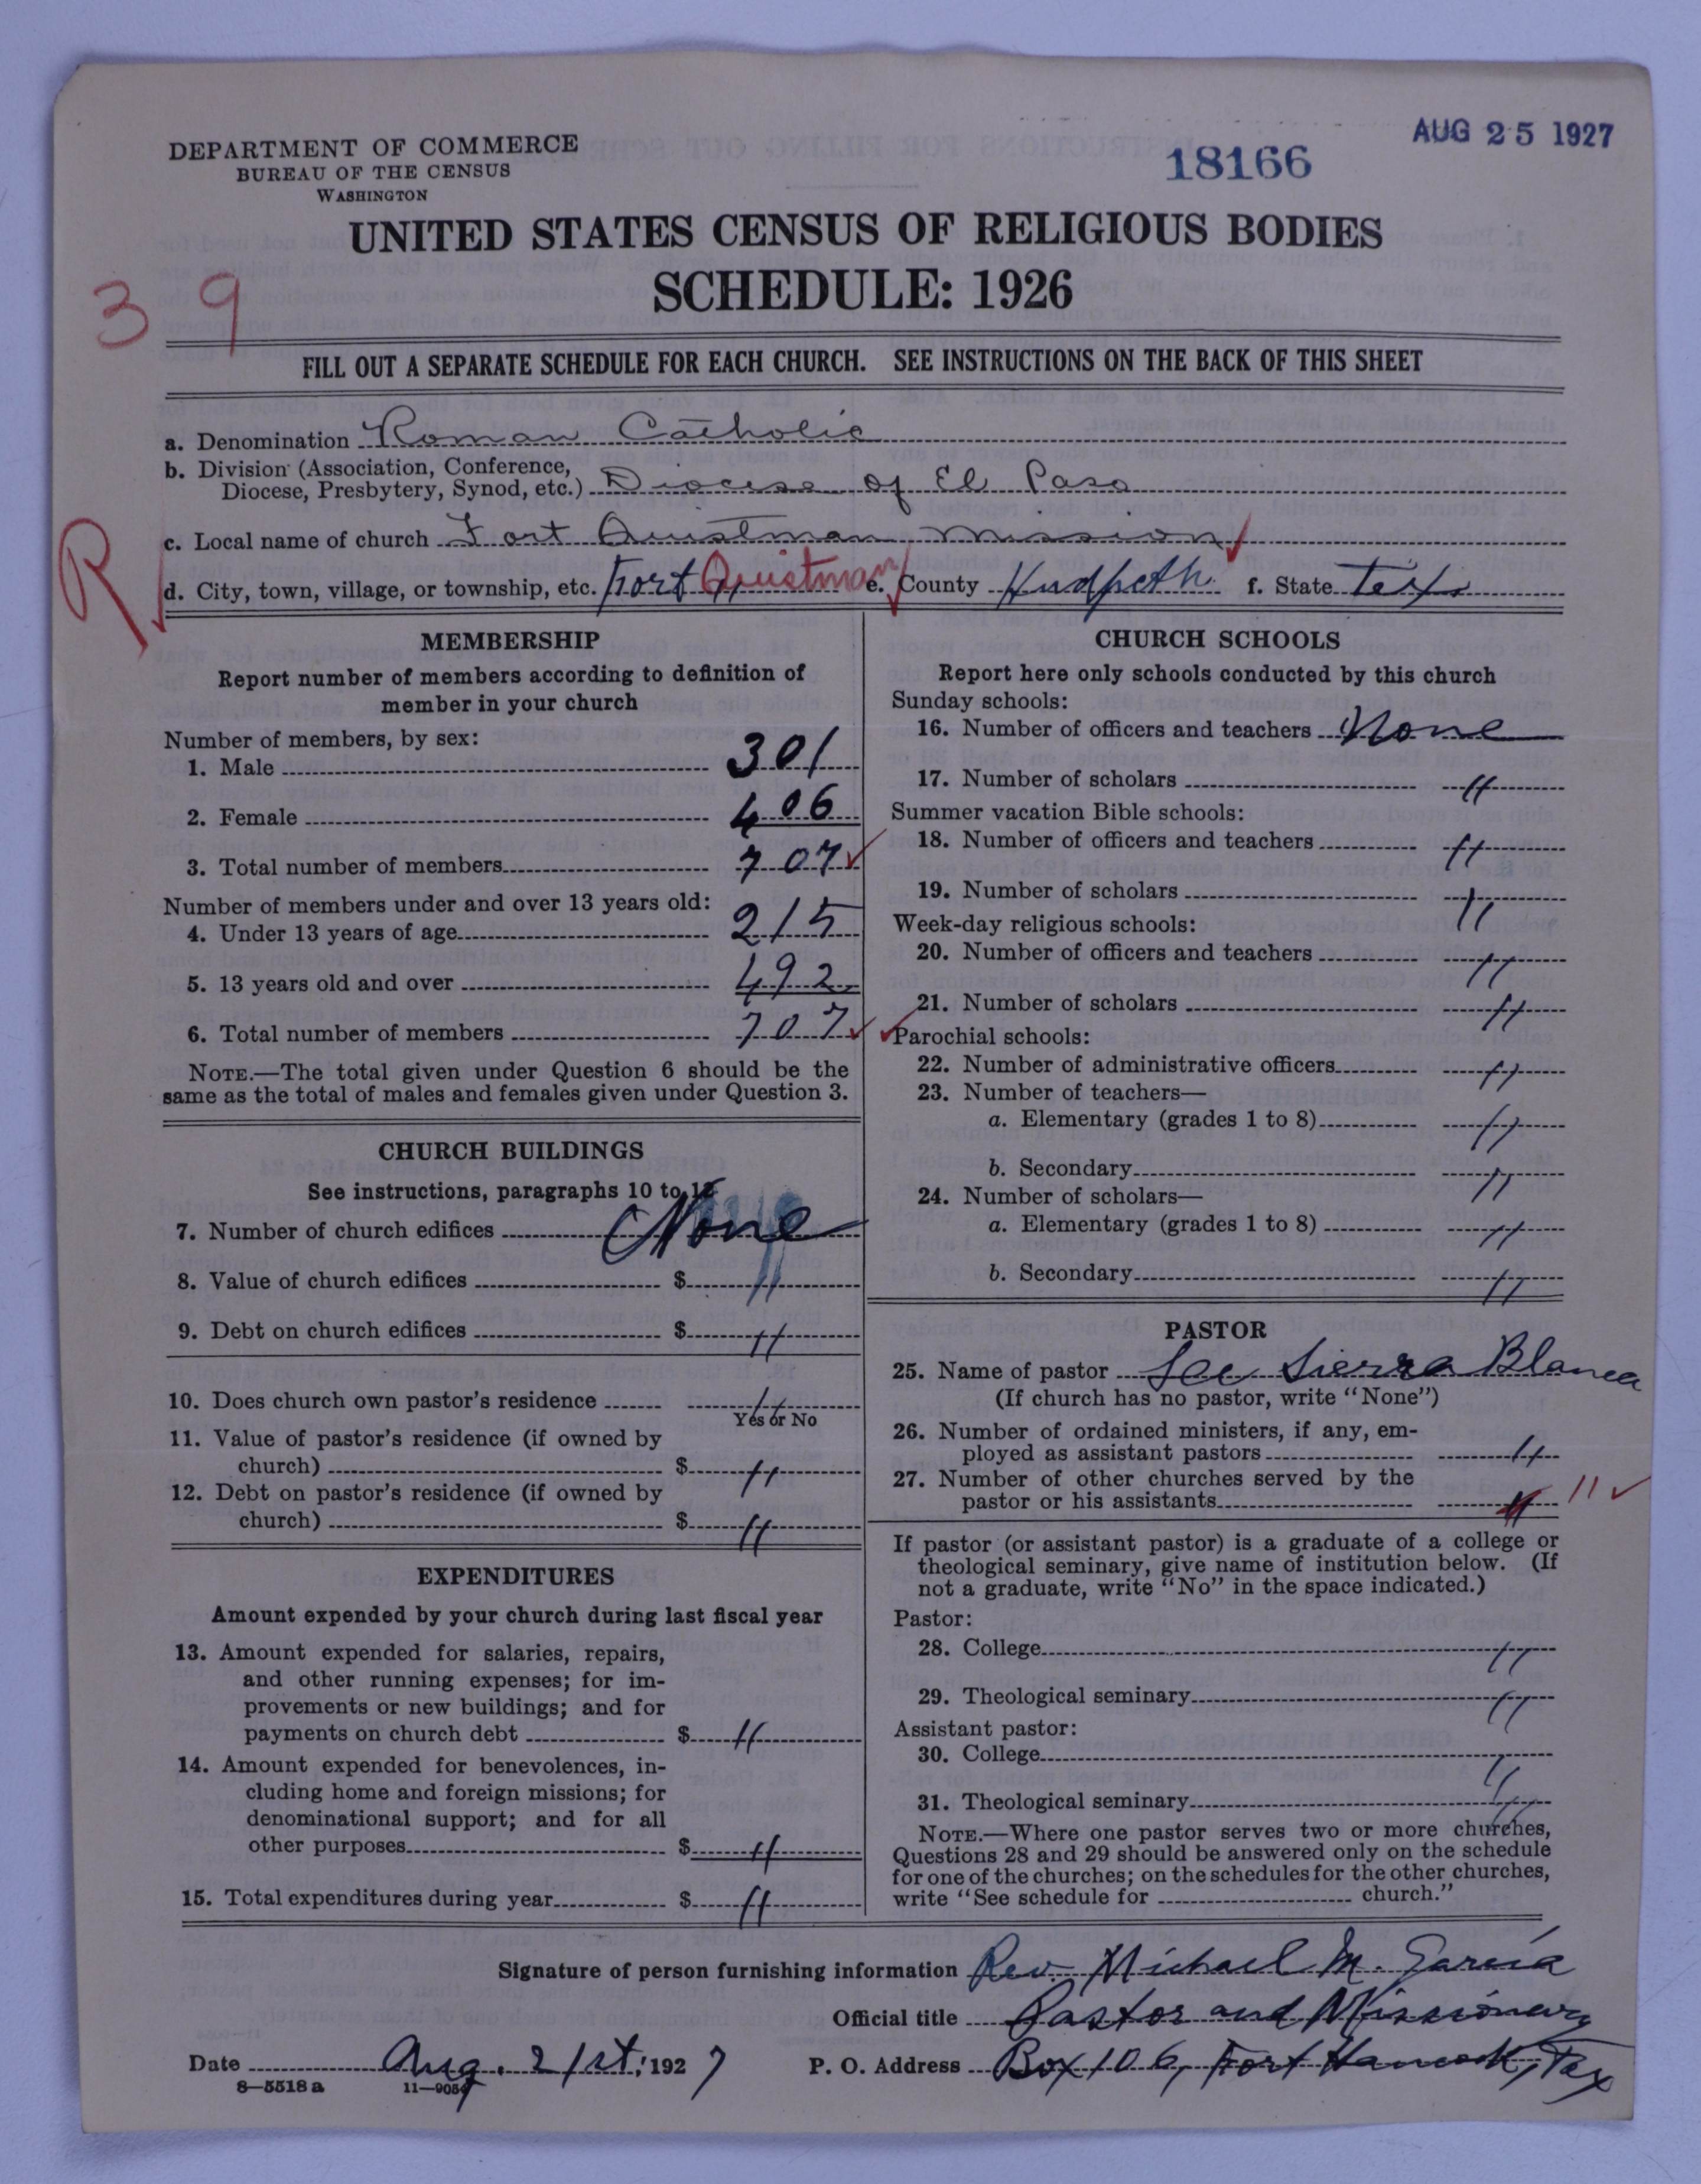 AUG 25 1927
18166
DEPARTMENT OF COMMERCE
BUREAU OF THE CENSUS
WASHINGTON
UNITED STATES CENSUS OF RELIGIOUS BODIES
SCHEDULE: 1926
39
FILL OUT A SEPARATE SCHEDULE FOR EACH CHURCH. SEE INSTRUCTIONS ON THE BACK OF THIS SHEET
a. Denomination Roman Catholic
b. Division (Association, Conference,
Diocese, Presbytery, Synod, etc.) Diocese of El Paso
c. Local name of church Fort Quistman Mission
R
d. City, town, village, or township, etc. Fort Quistman e. County Hudpeth f. State Tex
MEMBERSHIP
Report number of members according to definition of
member in your church
Number of members, by sex:
1. Male 301
2. Female 406
3. Total number of members 707
Number of members under and over 13 years old:
4. Under 13 years of age 215
5. 13 years old and over 492
6. Total number of members 707
NOTE.—The total given under Question 6 should be the
same as the total of males and females given under Question 3.
CHURCH BUILDINGS
See instructions, paragraphs 10 to 12
7. Number of church edifices None
8. Value of church edifices $ "
9. Debt on church edifices $ "
10. Does church own pastor's residence "
Yes or No
11. Value of pastor's residence (if owned by
church) $ "
12. Debt on pastor's residence (if owned by
church) $ "
EXPENDITURES
Amount expended by your church during last fiscal year
13. Amount expended for salaries, repairs,
and other running expenses; for im-
provements or new buildings; and for
payments on church debt $ "
14. Amount expended for benevolences, in-
cluding home and foreign missions; for
denominational support; and for all
other purposes $ "
15. Total expenditures during year $ "
CHURCH SCHOOLS
Report here only schools conducted by this church
Sunday schools:
16. Number of officers and teachers None
17. Number of scholars "
Summer vacation Bible schools:
18. Number of officers and teachers "
19. Number of scholars "
Week-day religious schools:
20. Number of officers and teachers "
21. Number of scholars "
Parochial schools:
22. Number of administrative officers "
23. Number of teachers—
a. Elementary (grades 1 to 8) "
b. Secondary "
24. Number of scholars—
a. Elementary (grades 1 to 8) "
b. Secondary "
PASTOR
25. Name of pastor See Sierra Blanca
(If church has no pastor, write "None")
26. Number of ordained ministers, if any, em-
ployed as assistant pastors "
27. Number of other churches served by the
pastor or his assistants " 11
If pastor (or assistant pastor) is a graduate of a college or
theological seminary, give name of institution below. (If
not a graduate, write "No" in the space indicated.)
Pastor:
28. College "
29. Theological seminary "
Assistant pastor:
30. College "
31. Theological seminary "
NOTE.—Where one pastor serves two or more churches,
Questions 28 and 29 should be answered only on the schedule
for one of the churches; on the schedules for the other churches,
write "See schedule for church."
Signature of person furnishing information Rev. Michael M. García
Official title Pastor and Missionary
Date Aug. 21st, 1927 P. O. Address Box 106, Fort Hancock, Tex
8—5518a 11—9054